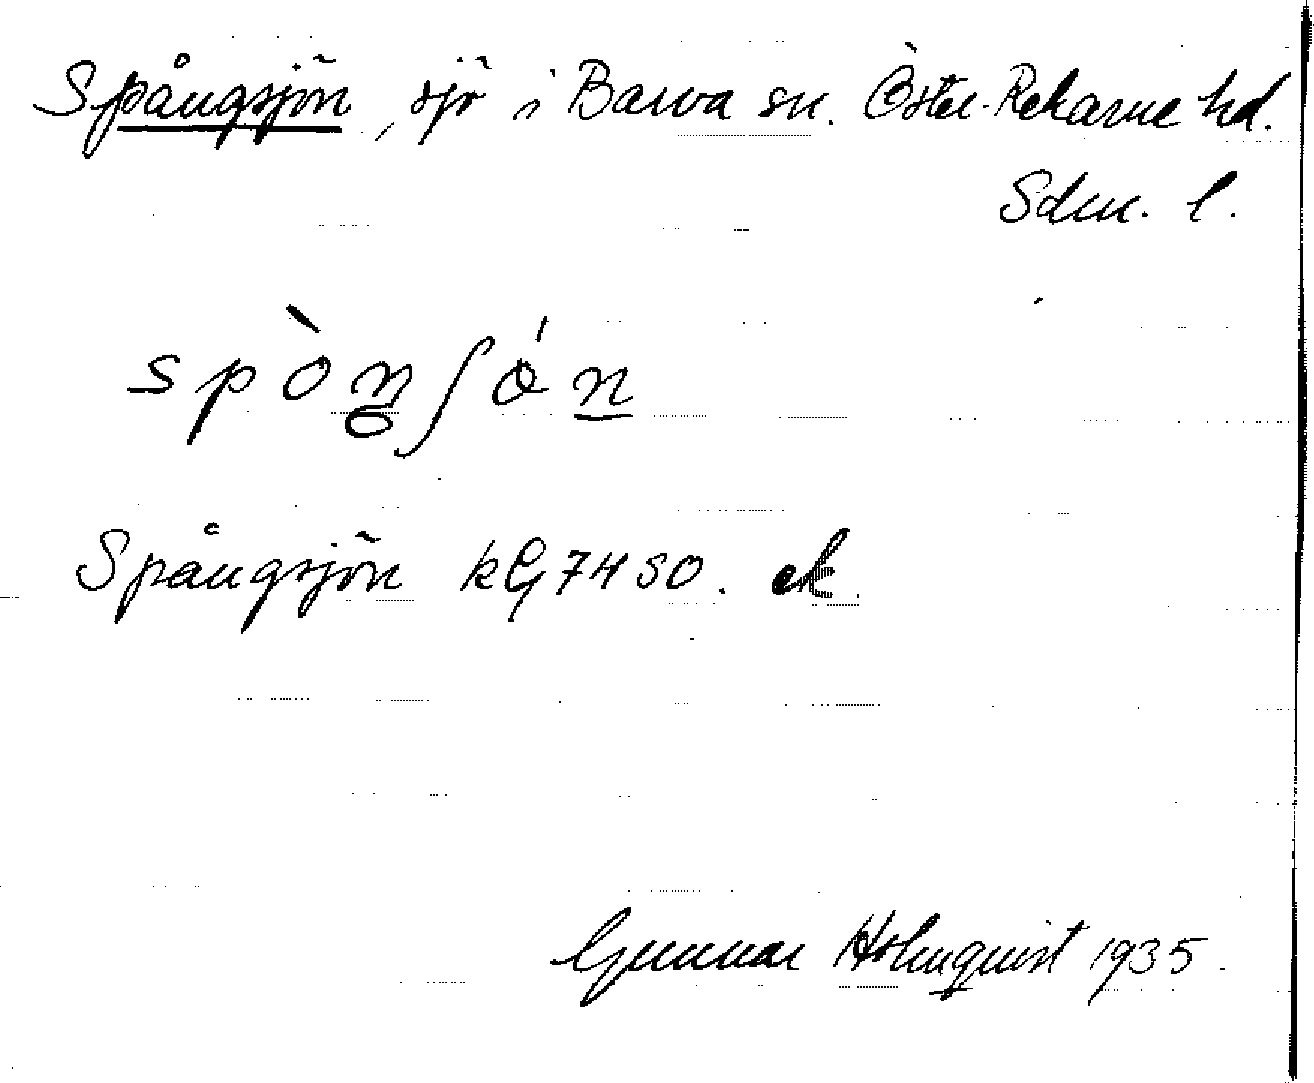 Spångsjön, sjö i Barva sn. Öster-Rekarne hd.
Sdm. l.
spòŋʃǿn
Spångsjön kG 74 SO.
Gunnar Holmquist 1935.